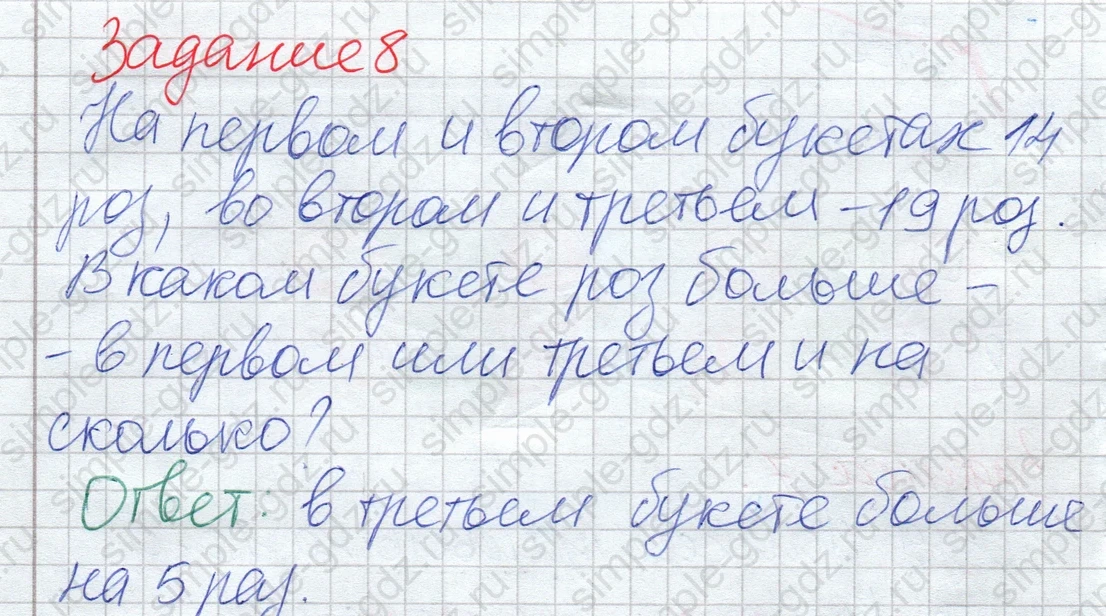 Задание 8
На первом и втором букетах 14
роз, во втором и третьем - 19 роз.
В каком букете роз больше -
- в первом или третьем и на
сколько?
Ответ: в третьем букете больше
на 5 роз.
simple-gdz.ru